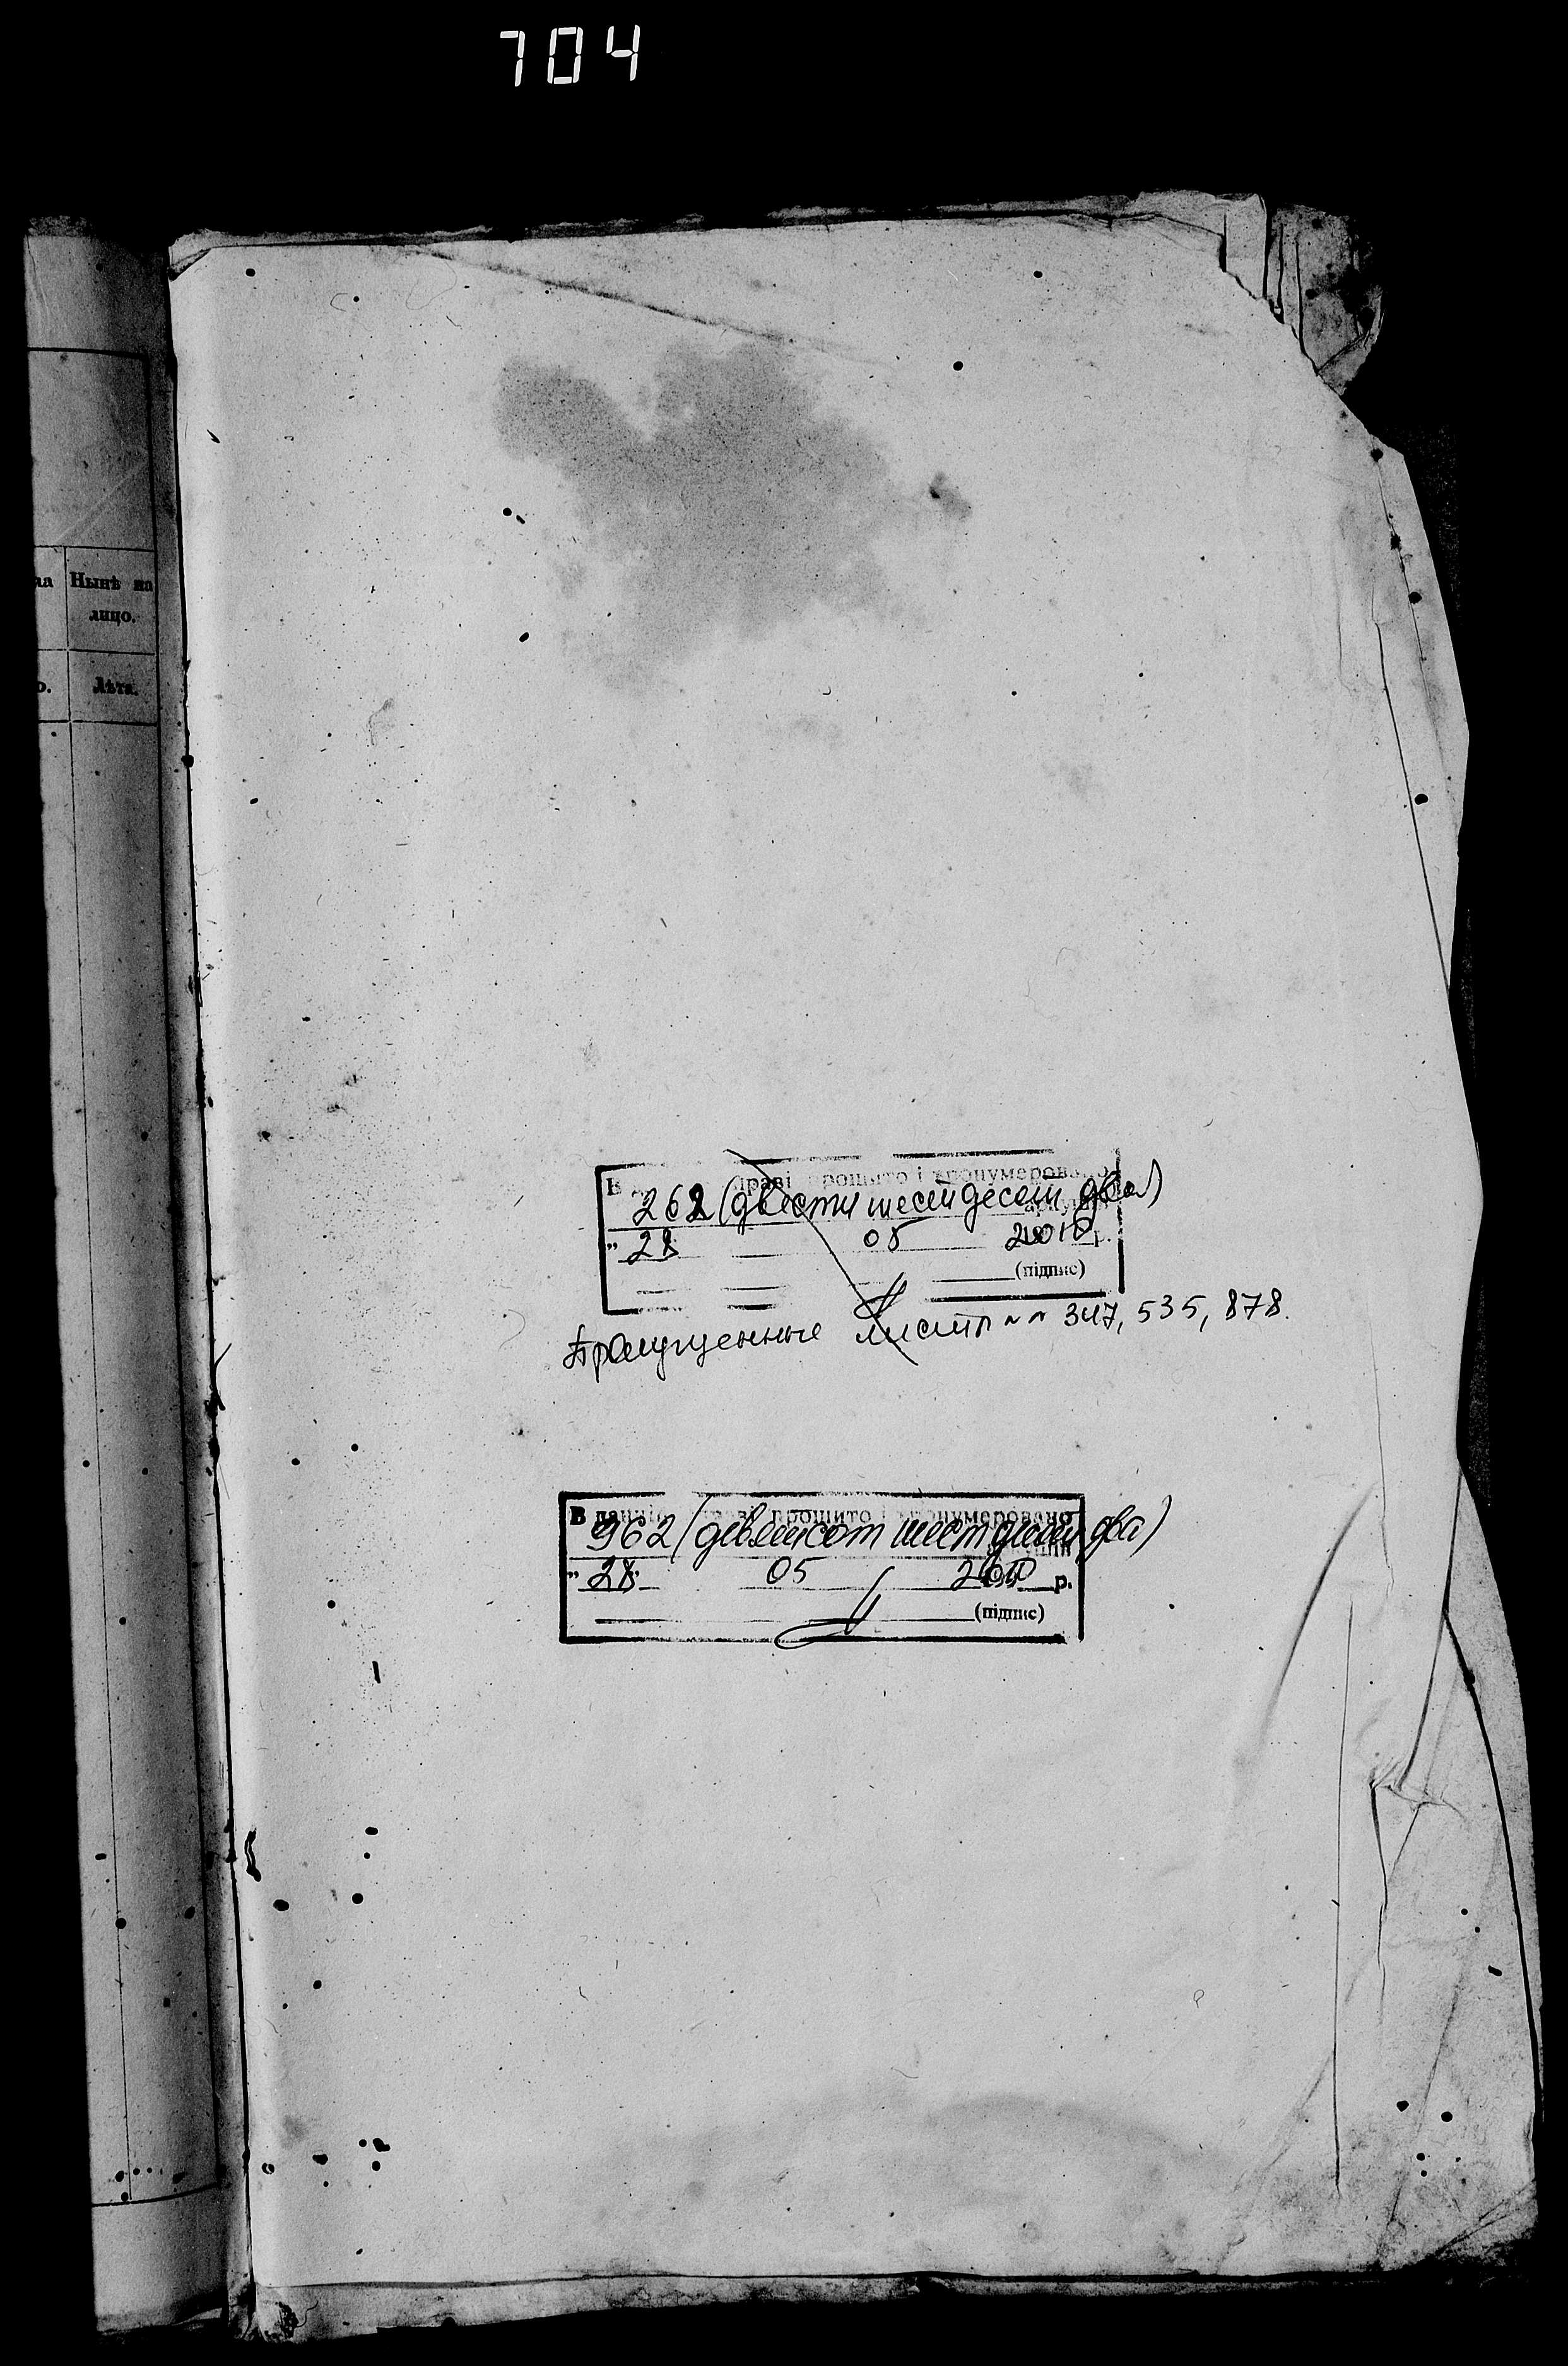 704
Нынѣ на
лицо.
Лѣта.
прошито і пронумеровано
262 (двести шестьдесят два)
28 05 2010 р.
(підпис)
Пропущенные листы №№ 347, 535, 878.
В даній справі прошито і пронумеровано
962 (девятьсот шестьдесят два)
" 28 " 05 2010 р.
(підпис)